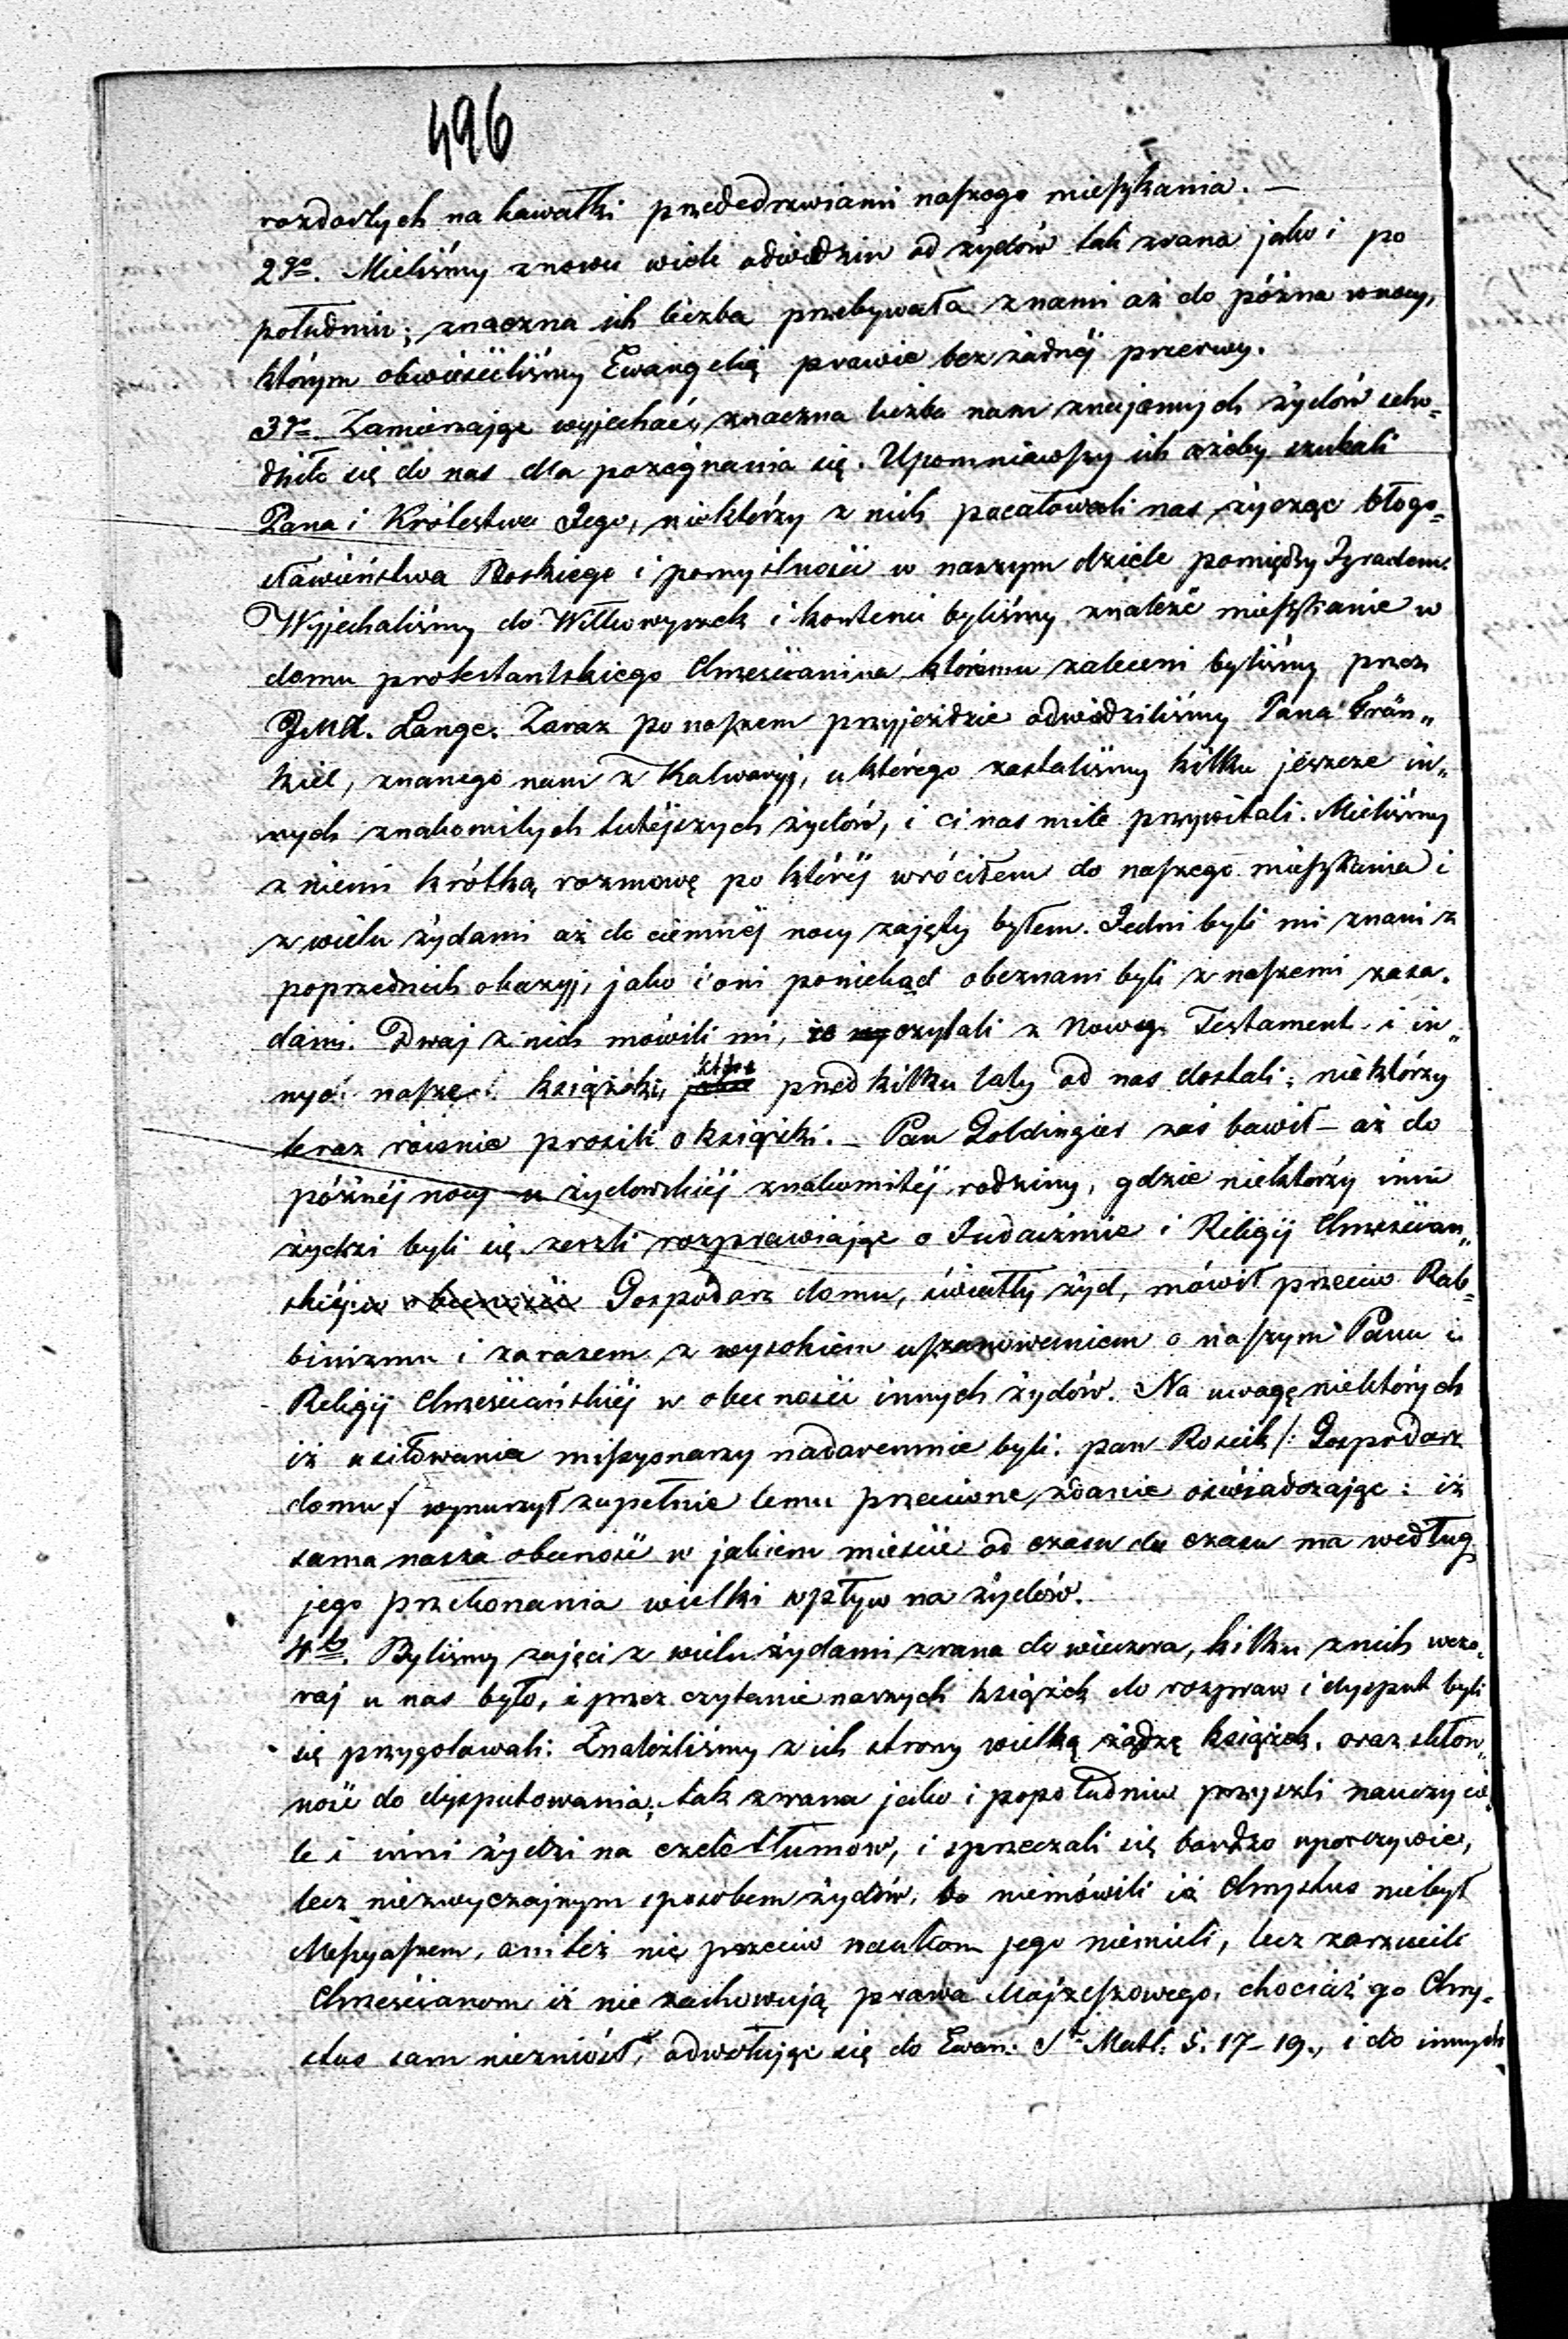 496
rozdartych na kawałki przededrzwiami naszego mieszkania. —
2go. Mieliśmy znowu wiele odwidzin od żydów tak zrana jako i po
południu; znaczna ich liczba przebywała z nami aż do późna wnocy,
którym obwieściliśmy Ewangelią prawie bez żadnéj przerwy.
3go. Zamierzając wyjechać, znaczna liczba nam znajomych żydów scho=
dziło się do nas dla pożegnania się. Upomniawszy ich ażeby szukali
Pana i Królestwa Jego, niektórzy z nich pocałowali nas życząc błogo=
sławieństwa Boskiego i pomyślności w naszym dziele pomiędzy Izraelem.
Wyjechaliśmy do Wiłkowyszek i kontenci byliśmy znaleźć mieszkanie w
domu protestantskiego Chrześcianina któremu zaleceni byliśmy przez
Lange. Zaraz po naszem przyjeździe odwidziliśmy Pana Frän„
kiel, znanego nam z Kalwaryj, u którego zastaliśmy kilku jeszcze in„
nych znakomitych tutéjszych żydów, i ci nas mile przywitali. Mieliśmy
z niemi krótką rozmowę po któréj wróciłem do naszego mieszkania i
z wielu żydami aż do ciemnéj nocy zajęty byłem. Jedni byli mi znani z
poprzednich okazyj, jako i oni poniekąd obeznani byli z naszemi zasa=
dami. Dwaj z nich mówili mi, że czytali z Nowego Testament i in„
nych naszych książek, które przed kilku laty od nas dostali; niektórzy
teraz równie prosili o książki. — Pan Goldinger zaś bawił — aż do
późnéj nocy u żydowskiéj znakomitéj rodziny, gdzie niektórzy inni
żydzi byli się zeszli rozprawiając o Judaizmie i Religij Chrześcian„
skiéj w obecności Gospodarz domu, światły żyd, mówił przeciw Rab=
binizmu i zarazem z wysokiem uszanowaniem o naszym Panu i
Religij Chrześciańskiéj w obecności innych żydów. Na uwagę niektórych
iż usiłowania missyonarzy nadaremnie byli. pan Roseik /: Gospodarz
domu / wynurzył zupełnie temu przeciwne zdanie oświadczając: iż
sama nasza obecność w jakiem mieście od czasu do czasu ma według
jego przekonania wielki wpływ na żydów.
4to. Byliśmy zajęci z wielu żydami zrana do wieczora, kilku znich wczo=
raj u nas było, i przez czytanie naszych książek do rozpraw i dysput byli
się przygotowali: Znaleźliśmy z ich strony wielką żądzę książek, oraz skłon„
ność do dysputowania; tak zrana jako i popołudniu przyszli nauczycie=
le i inni żydzi na czele tłumów, i sprzeczali się bardzo uporczywie,
lecz niezwyczajnym sposobem żydów, bo niemówili iż Chrystus niebył
Messyaszem, ani też nic przeciw naukom jego niemieli, lecz zarzucili
Chrześcianom iż nie zachowują prawa Mojzeszowego, chociaż go Chry=
stus sam niezniósł, odwołując się do Ewan: St. Matt. 5. 17–19., i do innych